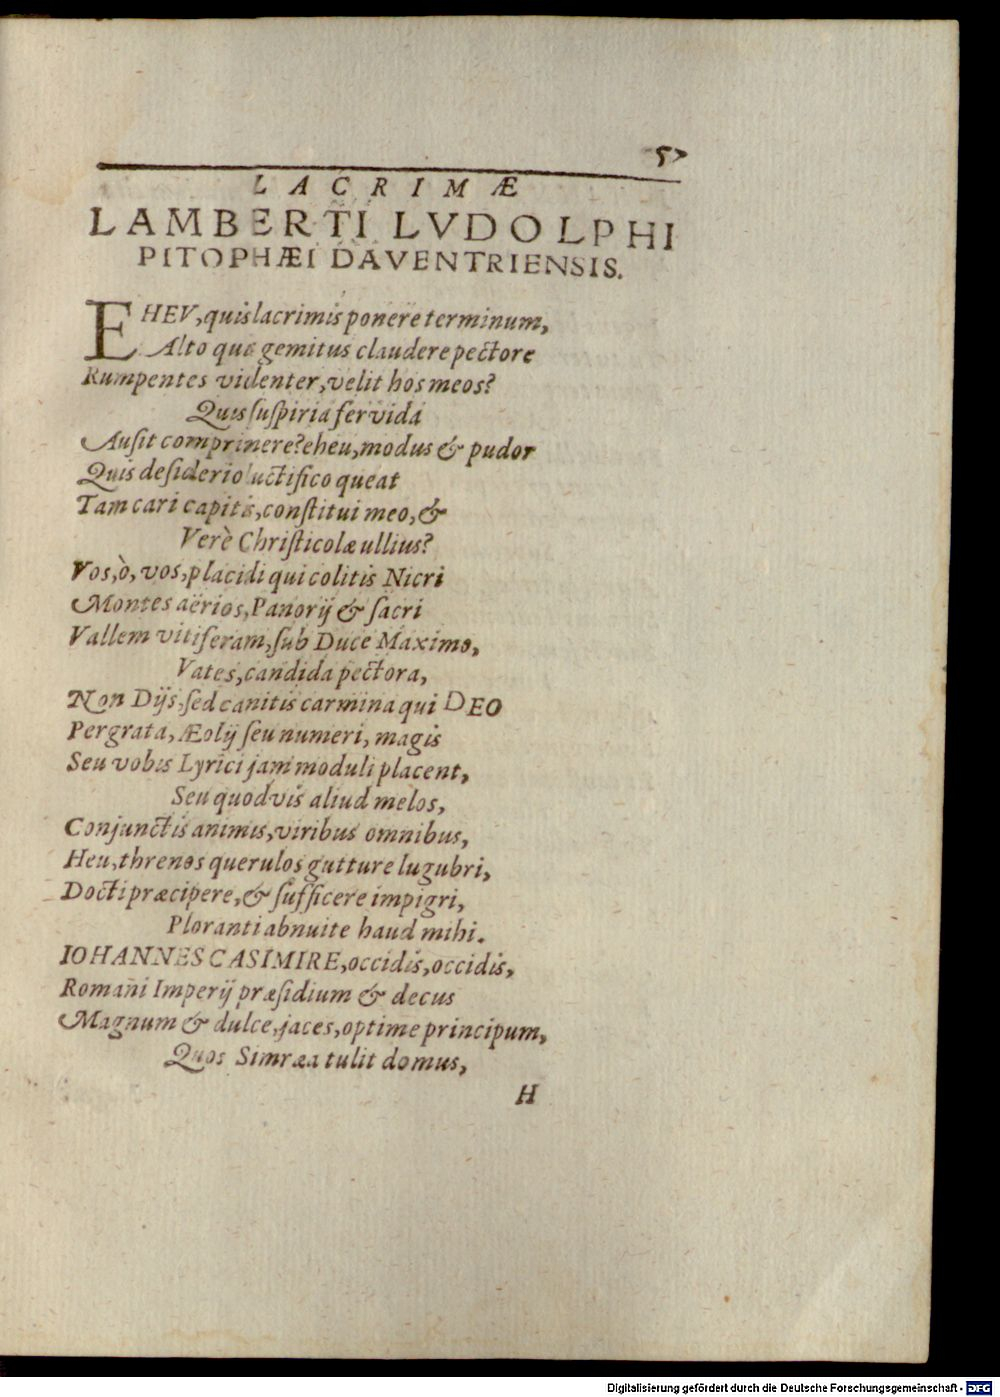 57
LACRIMÆ
LAMBERTI LVDOLPHI
PITOPHÆI DAVENTRIENSIS.
EHEV, quis lacrimis ponere terminum,
Alto qua gemitus claudere pectore
Rumpentes videnter, velit hos meos?
Quis suspiria fervida
Ausit comprinere? eheu, modus & pudor
Quis desiderio luctifico queat
Tam cari capitis, constitui meo, &
Verè Christicolæ ullius?
Vos, ò, vos, placidi qui colitis Nicri
Montes aërios, Panorij & sacri
Vallem vitiferam, sub Duce Maximo,
Vates, candida pectora,
Non Dijs, sed canitis carmina qui DEO
Pergrata, Æolij seu numeri, magis
Seu vobis Lyrici jam moduli placent,
Seu quodvis aliud melos,
Conjunctis animis, viribus omnibus,
Heu, threnos querulos gutture lugubri,
Docti præcipere, & sufficere impigri,
Ploranti abnuite haud mihi.
IOHANNES CASIMIRE, occidis, occidis,
Romani Imperij præsidium & decus
Magnum & dulce, jaces, optime principum,
Quos Simræa tulit domus,
H
Digitalisierung gefördert durch die Deutsche Forschungsgemeinschaft - DFG